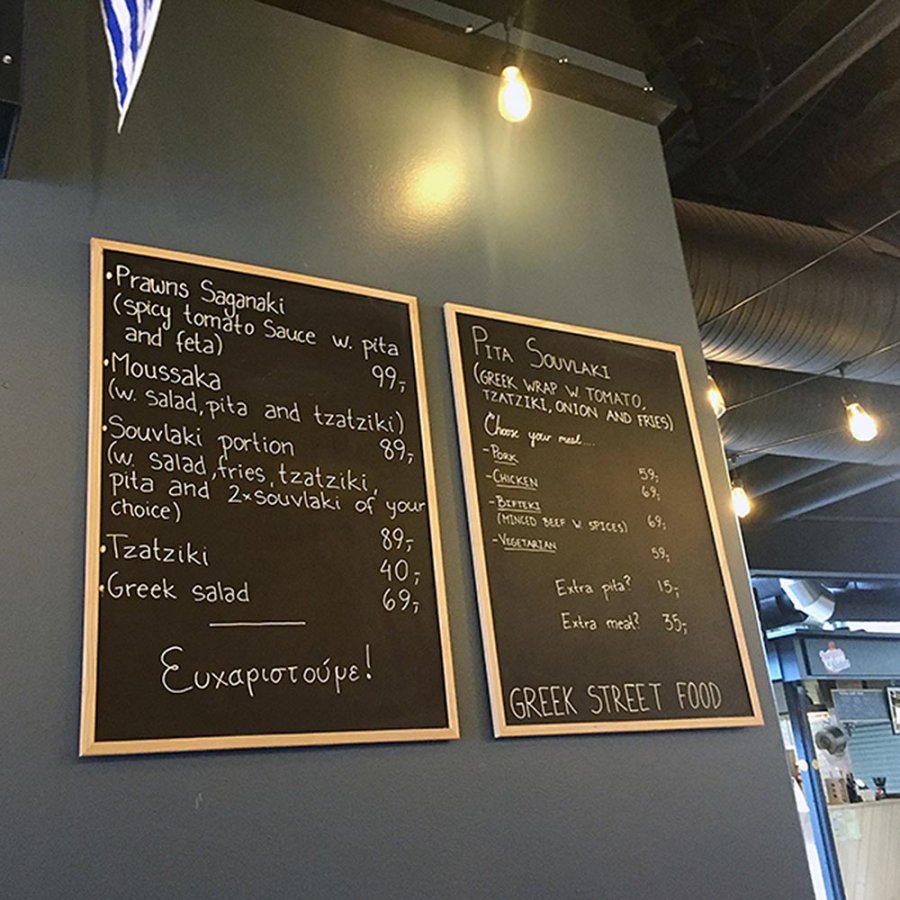 • Prawns Saganaki
(spicy tomato Sauce w. pita
and feta) 99,-
• Moussaka
(w. salad, pita and tzatziki)
• Souvlaki portion 89,-
(w. salad, fries, tzatziki,
pita and 2x souvlaki of your
choice) 89,-
• Tzatziki 40,-
• Greek salad 69,-
Ευχαριστούμε!
PITA SOUVLAKI
(GREEK WRAP W. TOMATO,
TZATZIKI, ONION AND FRIES)
Choose your meat....
- PORK 59,-
- CHICKEN 69,-
- BIFTEKI
(MINCED BEEF W. SPICES) 69,-
- VEGETARIAN 59,-
Extra pita? 15,-
Extra meat? 35,-
GREEK STREET FOOD